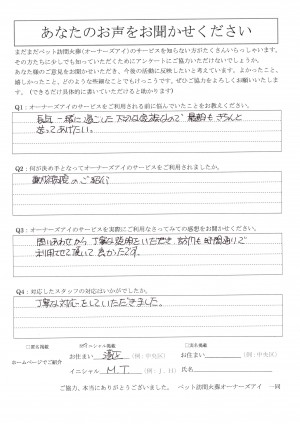 あなたのお声をお聞かせください
まだまだペット訪問火葬(オーナーズアイ)のサービスを知らない方がたくさんいらっしゃいます。
その方たちに少しでも知っていただくためにアンケートにご協力いただけないでしょうか。
あなた様のご意見をお聞かせいただき、今後の活動に反映したいと考えています。よかったこと、
嬉しかったこと、どのような些細なことでもけっこうです。ぜひご協力をよろしくお願いいたしま
す。(できるだけ具体的に書いていただけると助かります)
Q1：オーナーズアイのサービスをご利用される前に悩んでいたことをお教えください。
長年一緒に過ごした 大切な家族なので 最期もきちんと
送ってあげたい。
Q2：何が決め手となってオーナーズアイのサービスをご利用されましたか。
動物病院のご紹介
Q3：オーナーズアイのサービスを実際にご利用なさってみての感想をお聞かせください。
問いあわせから 丁寧な説明をいただき、訪問も時間通りで
利用させて頂いて良かったです。
Q4：対応したスタッフの対応はいかがでしたか。
丁寧な対応をしていただきました。
□匿名掲載
イニシャル掲載
□実名掲載
ホームページでご紹介
お住まい
(例：中央区)
お住まい
(例：中央区)
イニシャル M.T (例：J.H)
氏名
ご協力、本当にありがとうございました。 ペット訪問火葬オーナーズアイ 一同